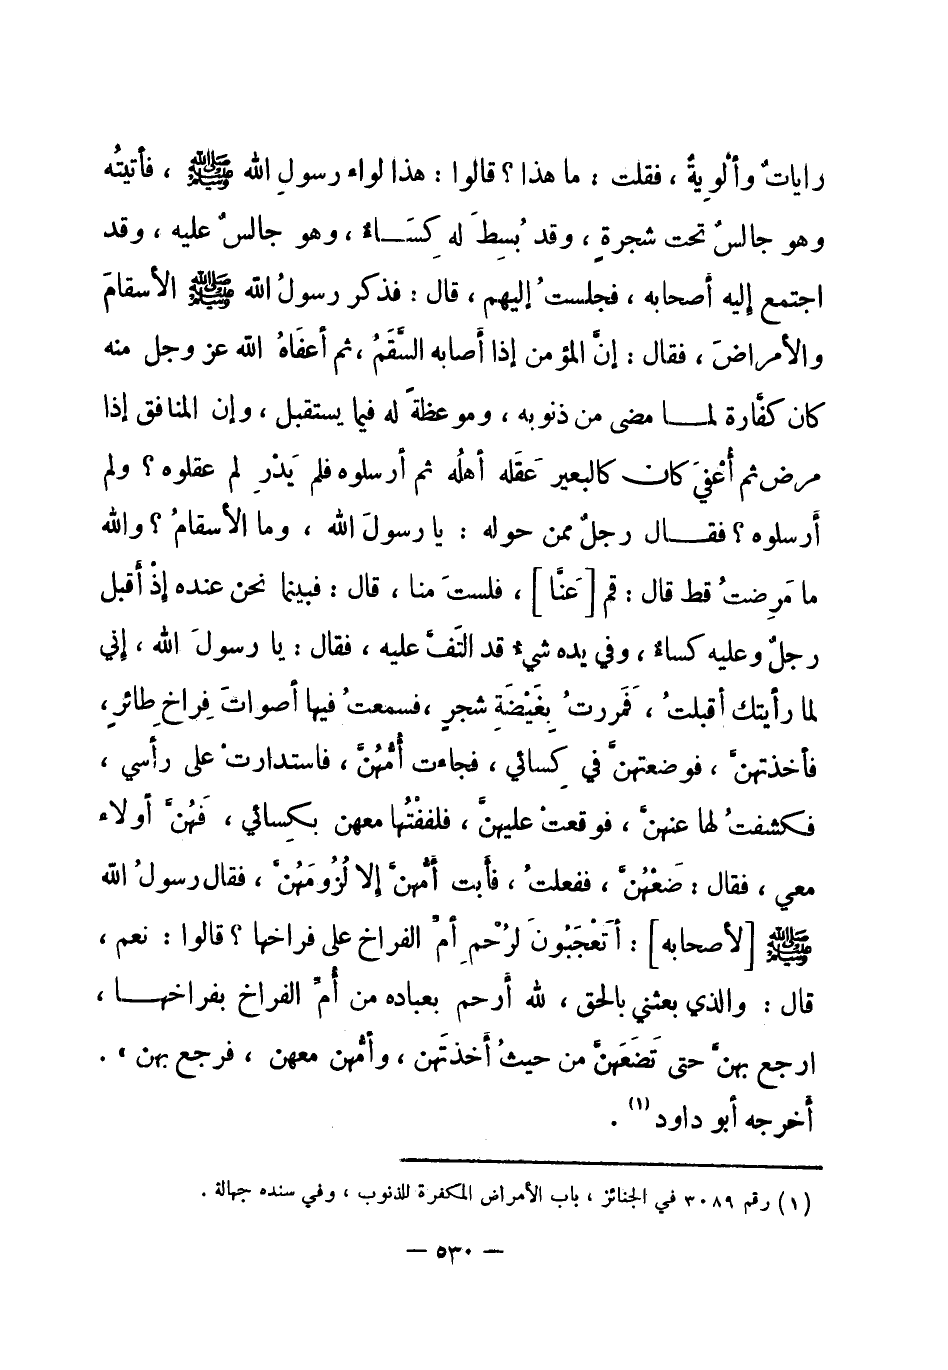 راياتٌ وألْويةٌ ، فقلت : ما هذا ؟ قالوا : هذا لواء رسولِ الله ﷺ ، فأتيتُه
وهو جالسٌ تحت شجرةٍ ، وقد بُسِطَ له كِسَـاءٌ ، وهو جالسٌ عليه ، وقد
اجتمع إليه أصحابه ، فجلستُ إليهم ، قال : فذكر رسولُ الله ﷺ الأسقامَ
والأمراضَ ، فقال : إنَّ المؤمن إذا أصابه السَّقَمُ ، ثم أعفَاهُ الله عز وجل منه
كان كفَّارة لمـا مضى من ذنوبه ، وموعظةً له فيما يستقبل ، وإن المنافق إذا
مرض ثم أُعْفِيَ كان كالبعير عَقَله أهلُه ثم أرسلوه فلم يَدْرِ لم عقلوه ؟ ولم
أرسلوه ؟ فقـال رجلٌ ممن حوله : يا رسولَ الله ، وما الأسقامُ ؟ والله
ما مَرِضتُ قط قال : قم [عَنَّا] ، فلستَ منا ، قال : فبينما نحن عنده إذْ أقبل
رجلٌ وعليه كساءٌ ، وفي يده شيءٌ قد التَفَّ عليه ، فقال : يا رسولَ الله ، إني
لما رأيتك أقبلتُ ، فَمررتُ بِغَيْضَةِ شجرٍ ، فسمعتُ فيها أصواتَ فِراخِ طائرٍ ،
فأخذتهنَّ ، فوضعتهنَّ في كِسائي ، فجاءت أُمُّهُنَّ ، فاستدارتْ على رأسي ،
فكشفتُ لها عنهنَّ ، فوقعتْ عليهنَّ ، فلففْتُها معهن بكِسائي ، فَهُنَّ أولاء
معي ، فقال : ضَعْهُنَّ ، ففعلتُ ، فأَبت أُمُّهنَّ إلا لُزُومَهُنَّ ، فقال رسولُ الله
ﷺ [لأصحابه] : أتَعْجَبُونَ لرُحْمِ أمِّ الفراخ على فراخها ؟ قالوا : نعم ،
قال : والذي بعثني بالحق ، لله أرحم بعباده من أُمِّ الفراخ بفراخهـا ،
ارجع بهنَّ حتى تَضَعَهنَّ من حيثُ أخذتَهن ، وأمُّهن معهن ، فرجع بهن » .
أخرجه أبو داود (١) .
(١) رقم ٣٠٨٩ في الجنائز ، باب الأمراض المكفرة للذنوب ، وفي سنده جهالة .
— ٥٣٠ —